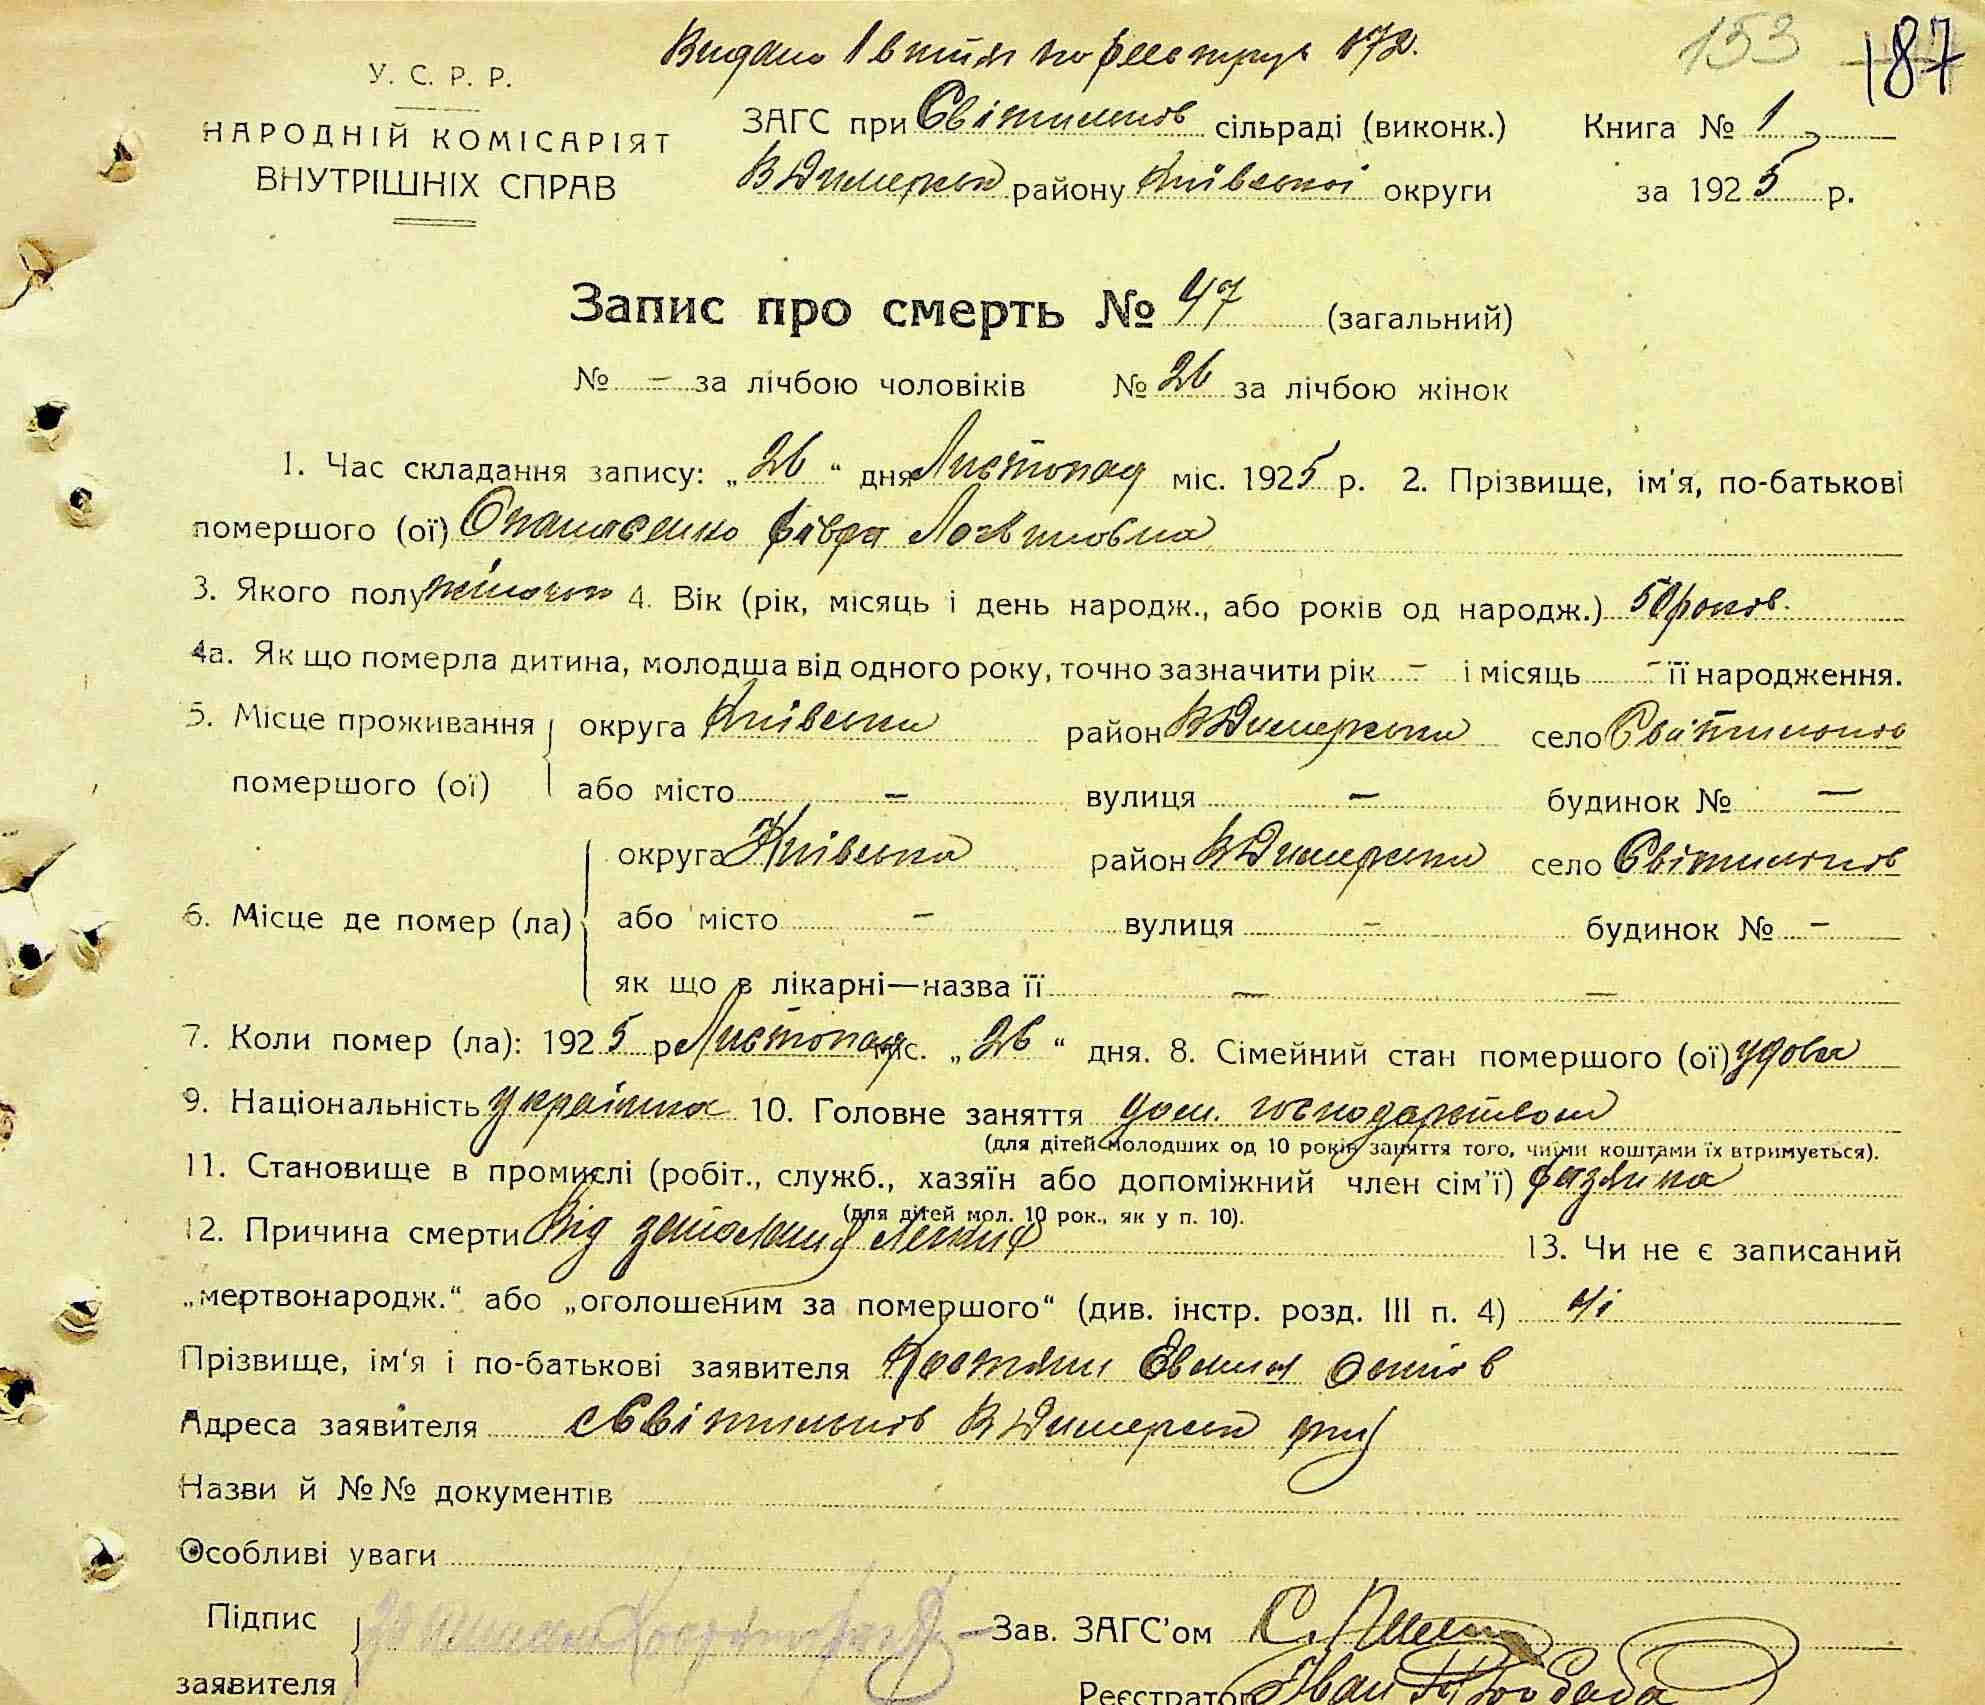 Видано 1 витяг по реєстру 172.
153 187
У. С. Р. Р.
НАРОДНІЙ КОМІСАРІЯТ
ВНУТРІШНІХ СПРАВ
ЗАГС при Світильнов сільраді (виконк.) Книга № 1
ВДимерськ району Київської округи за 1925 р.
Запис про смерть № 47 (загальний)
№ – за лічбою чоловіків № 26 за лічбою жінок
1. Час складання запису: „26“ дня Листопад міс. 1925 р. 2. Прізвище, ім'я, по-батькові
помершого (ої) Опанасенко Февра Логвиновна
3. Якого полу жіночого 4. Вік (рік, місяць і день народж., або років од народж.) 50 років.
4а. Як що померла дитина, молодша від одного року, точно зазначити рік – і місяць – її народження.
5. Місце проживання округа Київська район ВДимерськи село Світильнов
помершого (ої) або місто – вулиця – будинок № –
округа Київська район ВДимерськи село Світильнов
6. Місце де помер (ла) або місто – вулиця – будинок № –
як що в лікарні—назва її – –
7. Коли помер (ла): 1925 р Листопад міс. „26“ дня. 8. Сімейний стан помершого (ої) удова
9. Національність українка 10. Головне заняття дом. господарством
(для дітей молодших од 10 років заняття того, чиїми коштами їх втримується).
11. Становище в промислі (робіт., служб., хазяїн або допоміжний член сім'ї) хазяїна
(для дітей мол. 10 рок., як у п. 10).
12. Причина смерти Від запаления легких 13. Чи не є записаний
„мертвонародж.“ або „оголошеним за помершого“ (див. інстр. розд. III п. 4) ні
Прізвище, ім'я і по-батькові заявителя Костян Евмен Осипов
Адреса заявителя с Світильнов ВДимерськ рай
Назви й №№ документів
Особливі уваги
Підпис Зав. ЗАГС'ом
заявителя Реєстратор Іван